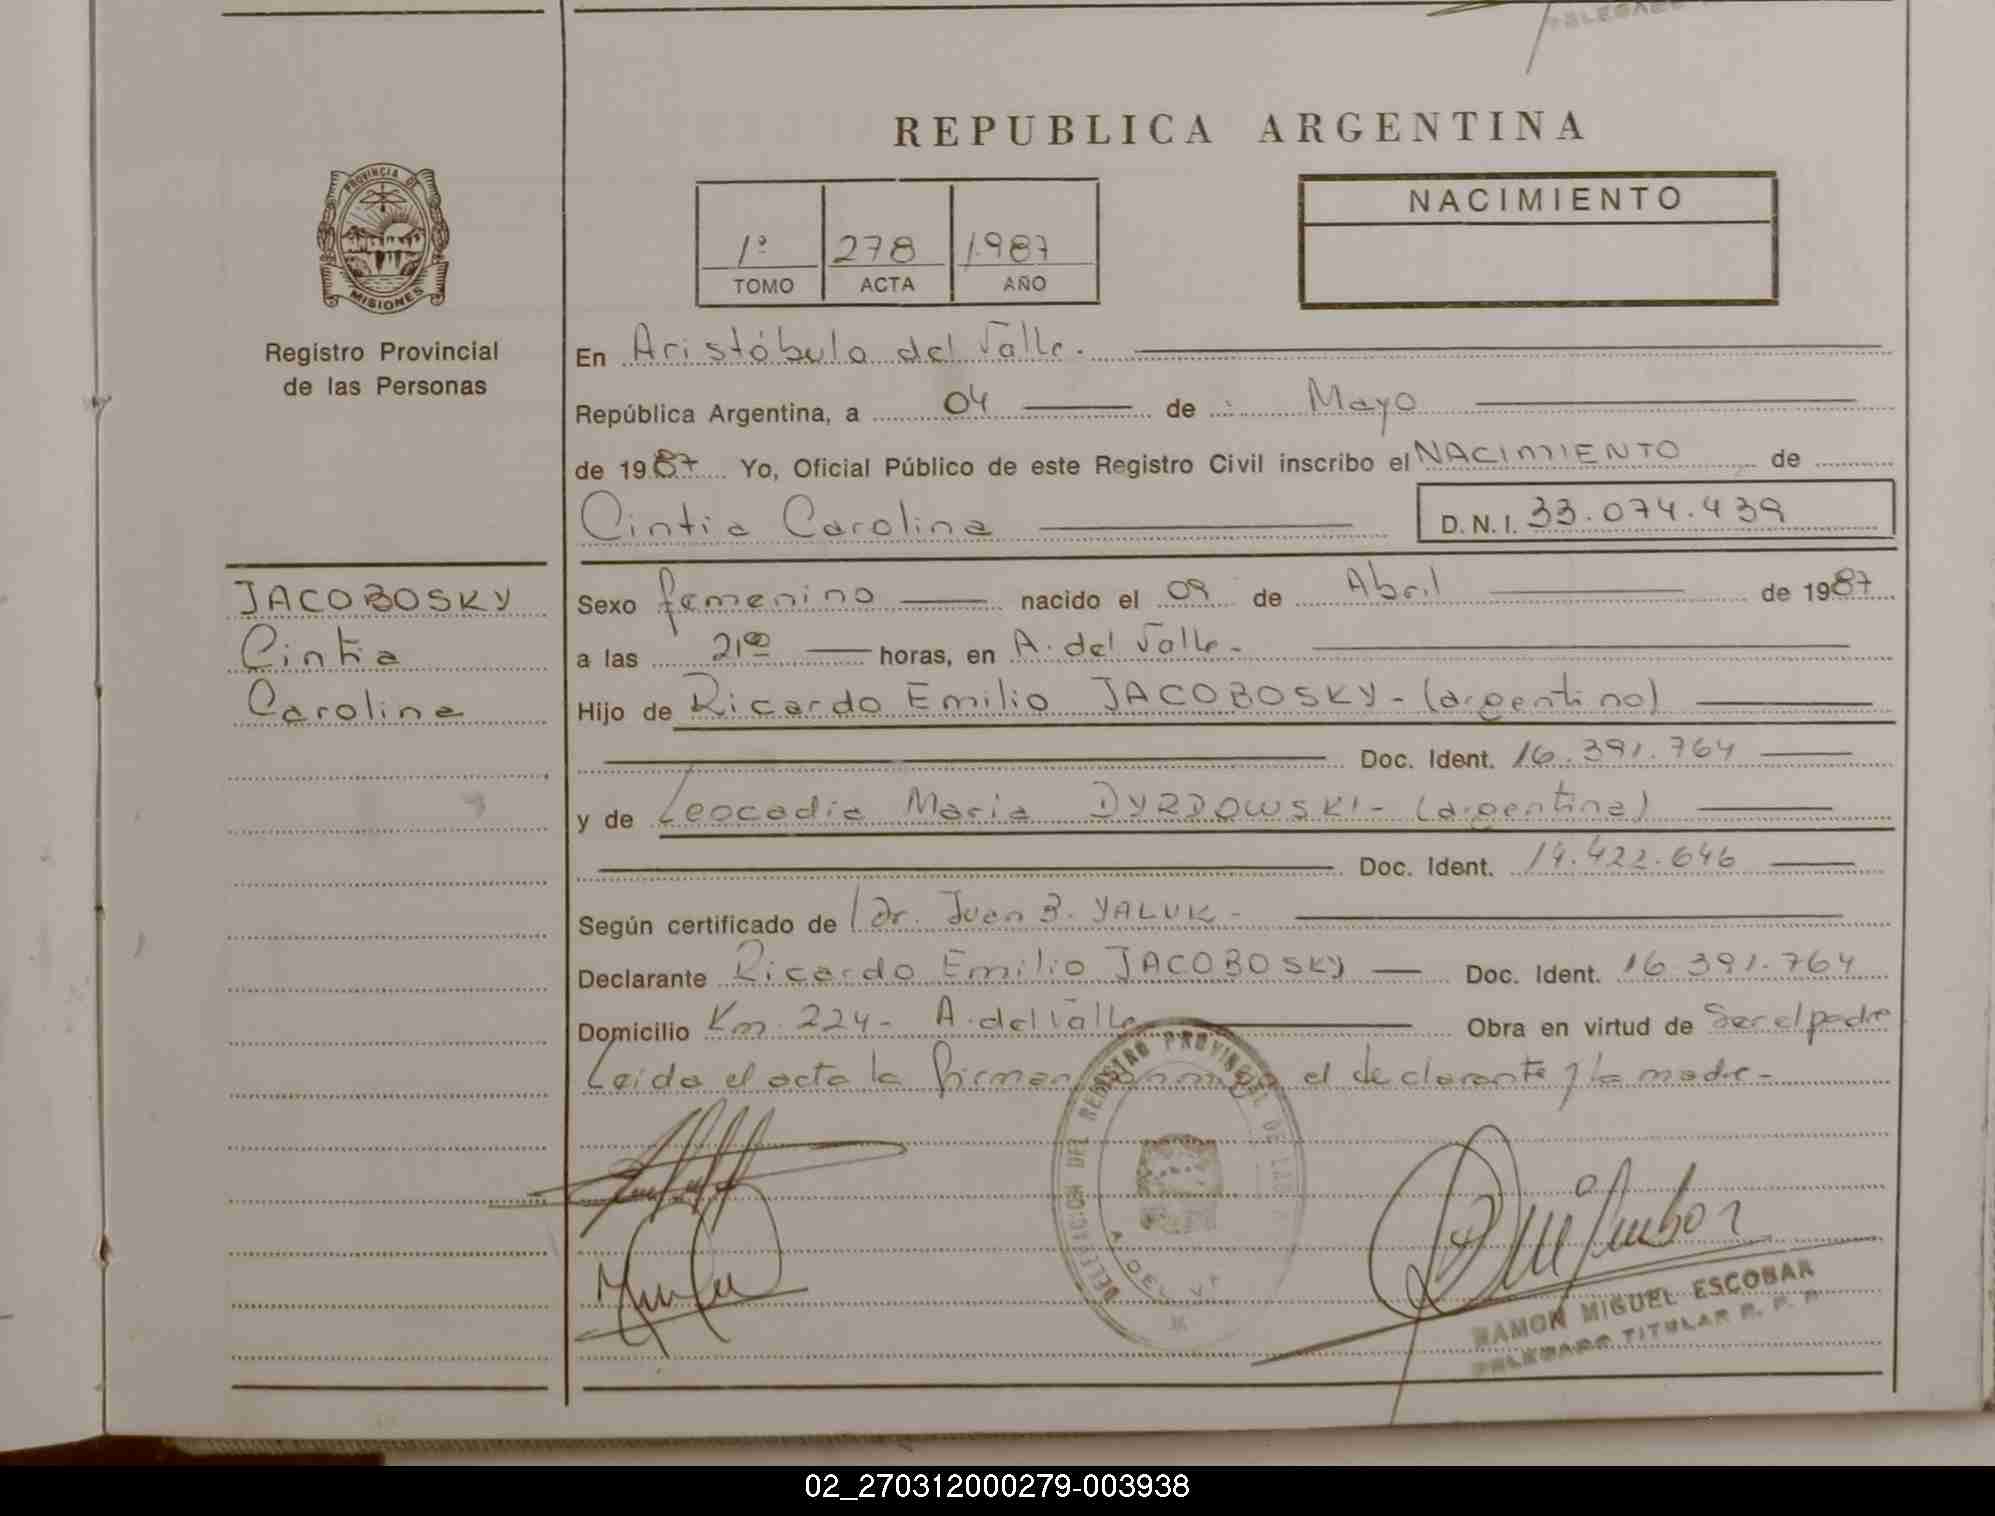 DELEGADO
REPUBLICA ARGENTINA
PROVINCIA DE
MISIONES
Registro Provincial
de las Personas
1º 278 1.987
TOMO ACTA AÑO
NACIMIENTO
En Aristóbulo del Valle.
República Argentina, a 04 de Mayo
de 1987 Yo, Oficial Público de este Registro Civil inscribo el NACIMIENTO de
Cintia Carolina D.N.I. 33.074.439
JACOBOSKY
Cintia
Carolina
Sexo femenino nacido el 09 de Abril de 1987
a las 21 00 horas, en A. del Valle.
Hijo de Ricardo Emilio JACOBOSKY - (argentino)
Doc. Ident. 16.391.764
y de Leocadia Maria DYRDOWSKI - (argentina)
Doc. Ident. 14.422.646
Según certificado de Dr. Juan B. YALUK -
Declarante Ricardo Emilio JACOBOSKY Doc. Ident. 16.391.764
Domicilio Km. 224 - A. del Valle Obra en virtud de Ser el padre
Leida el acta la firman conmigo el declarante y la madre -
DELEGACION DEL REGISTRO PROVINCIAL DE LAS
A. DEL V
RAMON MIGUEL ESCOBAR
DELEGADO TITULAR R. P. P.
02_270312000279-003938